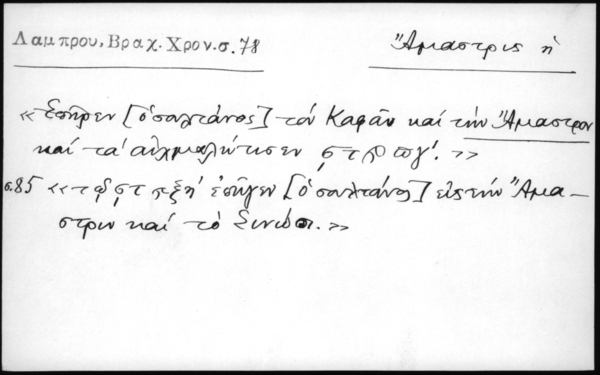 Λαμπρου, Βραχ. Χρον. σ. 78
Ἄμαστρις ἡ
«Ἐπῆρεν [ὁ σουλτάνος] τὸν Καφᾶν καὶ τὴν Ἄμαστρον
καὶ τὰ αἰχμαλώτισεν
σ. 85 « ἐπῆγεν [ὁ σουλτάνος] εἰς τὴν Ἄμα-
στριν καὶ τὸ Σινώπι.»